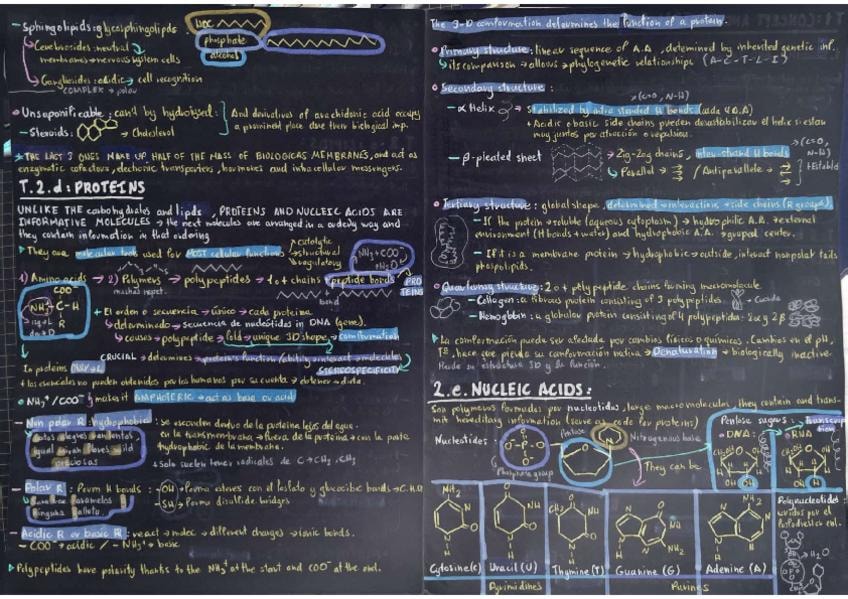 - Sphingolipids: glycosphingolipids
Cerebrosides: neutral
membranes → nervous system cells
Gangliosides: acidic → cell recognition
COMPLEX → polar
phosphate
alcohol
• Unsaponificable: can't by hydrolysed:
- Steroids: → Cholesterol
And derivatives of arachidonic acid occupy
a prominent place due their biological imp.
* THE LAST 3 ONES MAKE UP HALF OF THE MASS OF BIOLOGICAL MEMBRANES, and act as
enzymatic cofactors, electronic transporters, hormones and intracellular messengers.
T.2.d: PROTEINS
UNLIKE THE carbohydrates and lipids, PROTEINS AND NUCLEIC ACIDS ARE
INFORMATIVE MOLECULES → the next molecules are arranged in a orderly way and
they contain information in that ordering
They are molecular tools used for MOST cellular functions
catalytic
structural
regulatory
NH3+COO-
H2O
1) Amino acids → 2) Polymers → polypeptides → 1 o + chains
peptide bonds
PRO
TEINS
bond
COO-
NH3+ - C - H
R
+ El orden o secuencia → único → cada proteína
determinado → secuencia de nucleótidos in DNA (gene).
causes → polypeptide → fold → unique 3D shape → comformation
CRUCIAL → determines → protein's function/ability interact → molecules
STEREOSPECIFICITY
In proteins only → L
+ los esenciales no pueden obtenerlos por los humanos por su cuenta → obtener → dieta.
• NH3+/COO- makes it AMPHOTERIC → act as base or acid
- Non polar R: hydrophobic: se esconden dentro de la proteína lejos del agua.
en la transmembrana → fuera de la proteína → con la parte
hydrophobic de la membrana.
+ Solo suelen tener radicales de C → CH2, CH3
- Polar R: Form H bonds: -OH → Forma esteres con el fosfato y glucocibic bonds → C.H.O
-SH → Forma disulfide bridges
- Acidic R or basic R: react → molec → different charges → ionic bonds.
- COO- → acidic / - NH3+ → base
Polypeptides have polarity thanks to the NH3+ at the start and COO- at the end.
The 3-D conformation determines the function of a protein.
• Primary structure: linear sequence of A.A, determined by inherited genetic inf.
its comparison → allows → phylogenetic relationships (A-C-T-L-I)
• Secondary structure:
(C=O, N-H)
- α Helix → stabilized by intra stranded H bonds (cada 4 A.A)
+ Acidic o basic side chains pueden desestabilizar el helix si estan
muy juntos por atracción o repulsion.
- β-pleated sheet → Zig-zag chains, inter-strand H bonds
(C=O,
N-H)
→ Parallel → / Antiparallel →
+ Estable
• Tertiary structure: global shape, determined → interactions → side chains (R groups).
- If the protein → soluble (aqueous cytoplasm) → hydrophilic A.A. → external
environment (H bonds + water) and hydrophobic A.A. → grupal center.
- If it is a membrane protein → hydrophobic → outside, interact nonpolar tails
phospolipids.
• Quaternary structure: 2 o + polypeptide chains forming macromolecule.
- Collagen: a fibrous protein consisting of 3 polypeptides → Cuerda
- Hemoglobin: a globular protein consisting of 4 polypeptides: 2α y 2β
La comformación puede ser afectada por cambios físicos o químicos. Cambios en el pH,
Tª, hace que pierda su comformación nativa → Denaturation → biologically inactive
Pierde su estructura 3D y la función.
2.e. NUCLEIC ACIDS:
Son polymeros formados por nucleotidos, large macromolecules, they contain and trans-
mit hereditary information (serve as code for proteins)
Nucleotides:
Phosphate group
Pentose
N
Nitrogenous base
They can be
Pentose sugars:
• DNA:
• RNA
Transcription
Polynucleotides:
unidos por el
H2O
Cytosine (C)
Uracil (U)
Thymine (T)
Guanine (G)
Adenine (A)
Pyrimidines
Purines